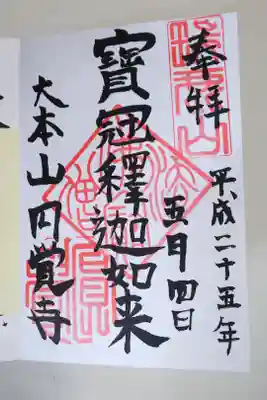 奉拝
平成二十五年
五月四日
寶冠釋迦如来
大本山円覚寺